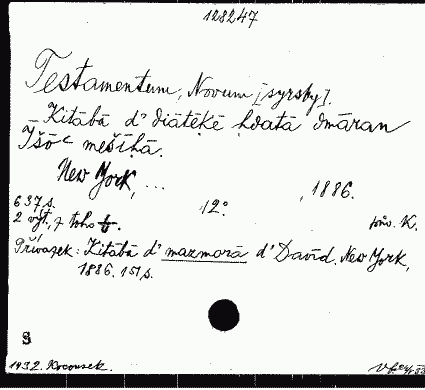 128247
Testamentum, Novum [syrsky].
Kitābā d' diātēkē ḥdatā dmāran
Īšōʿ mešīḥā.
New York, ... , 1886.
637 s. 12°
2 výt., z toho konv. K.
Přívazek: Kitābā d' mazmorā d' David. New York,
1886. 151 s.
S
1932. Kocourek.